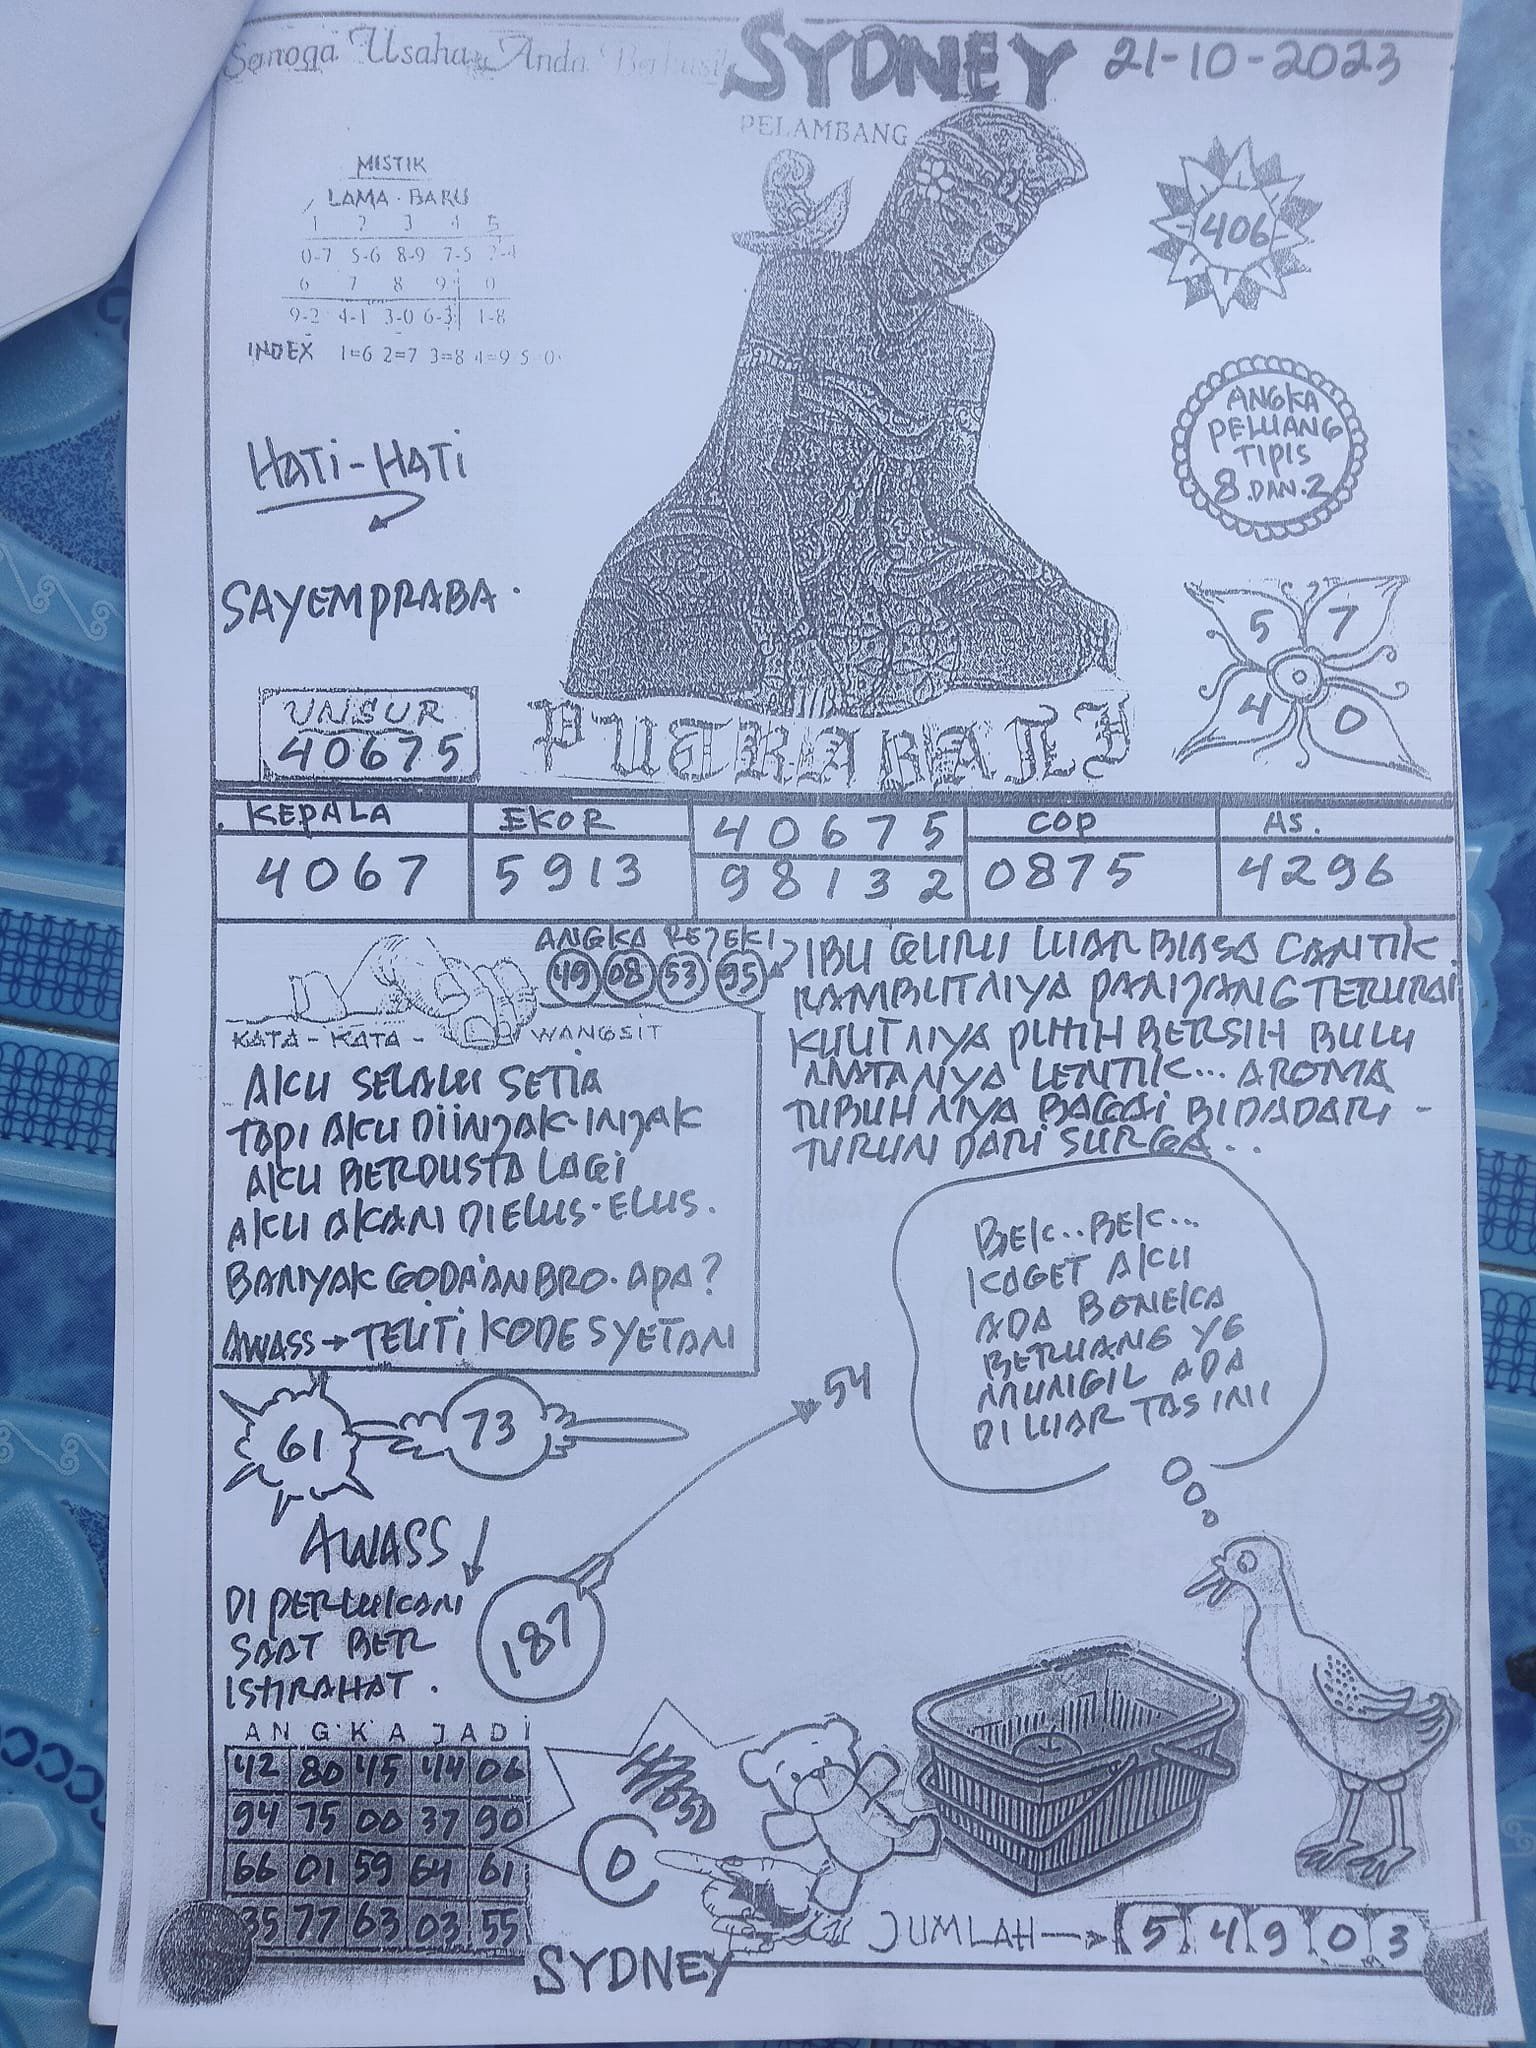 Semoga Usaha Anda Berhasil
SYDNEY 21-10-2023
PELAMBANG
MISTIK
LAMA - BARU
1 2 3 4 5
0-7 5-6 8-9 7-5 2-4
6 7 8 9 0
9-2 4-1 3-0 6-3 1-8
INDEX 1=6 2=7 3=8 4=9 5=0
406
ANGKA
PELUANG
TIPIS
8 DAN 2
HATI-HATI
SAYEMPRABA.
5 7
4 0
UNSUR
40675
PUTRA BALI
KEPALA EKOR 40675 COP AS.
4067 5913 98132 0875 4296
ANGKA REJEKI
49 08 53 95
KATA-KATA- WANGSIT
AKU SELALU SETIA
TAPI AKU DIINJAK-INJAK
AKU BERDUSTA LAGI
AKU AKAN DIELUS-ELUS.
BANYAK GODAAN BRO. APA?
AWASS → TELITI KODE SYETAN
IBU GURU LUAR BIASA CANTIK.
RAMBUTNYA PANJANG TERURAI
KULITNYA PUTIH BERSIH BULU
MATANYA LENTIK... AROMA
TUBUHNYA BAGAI BIDADARI -
TURUN DARI SURGA...
BEK.. BEK...
KAGET AKU
ADA BONEKA
BERUANG YG
MUNGIL ADA
DI LUAR TAS INI
61 73
54
AWASS
DI PERLUKAN
SAAT BER
ISTIRAHAT.
187
ANGKA JADI
42 80 45 44 06
94 75 00 37 90
66 01 59 64 61
35 77 63 03 55
0
JUMLAH → 5 4 9 0 3
SYDNEY